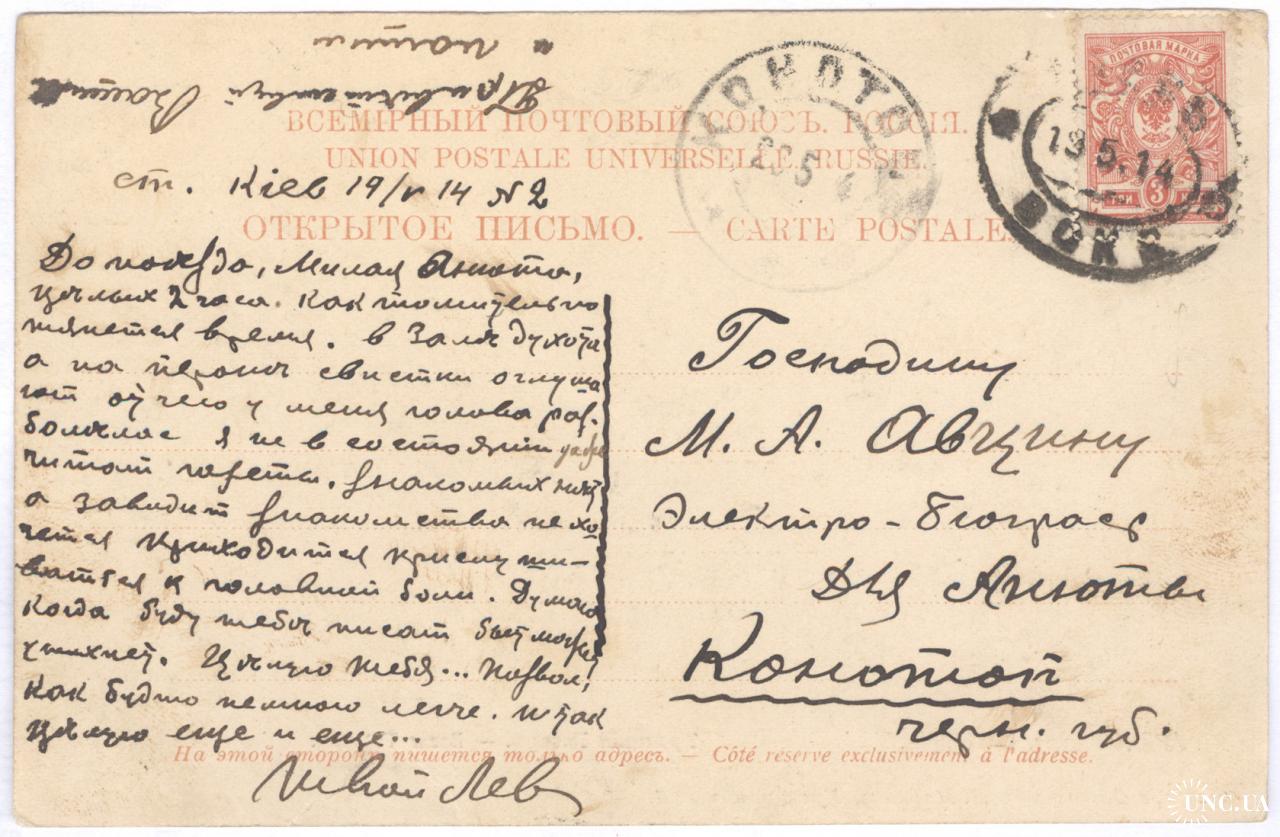 и мотив
Привет твоей
ВСЕМІРНЫЙ ПОЧТОВЫЙ СОЮЗЪ. РОССІЯ.
UNION POSTALE UNIVERSELLE. RUSSIE.
ст. Кіев 19/V 14 N2
ОТКРЫТОЕ ПИСЬМО. — CARTE POSTALE.
ПОЧТОВАЯ МАРКА
ТРИ 3
КОНОТОП
20 5
19.5.14
ВОКЗ
До поезда, Милая Анюта,
цѣлых 2 часа. Как томительно
тянется время. В залѣ духота
а на перонѣ свистки оглуша
ют отчего у меня голова раз-
болѣлас я не в состояніи даже
читат газеты. Знакомых нѣт
а заводит знакомства не хо
чется приходится прислуши-
ватся к головной боли. Думаю
когда буду тебѣ писат быт может
утихнет. Цѣлую тебя... Позвол!
Как будто немного легче. И так
цѣлую еще и еще...
Твой Лев
Господину
М. А. Авцину
Электро-Біограф
Для Анюты
Конотоп
черн. губ.
На этой сторонѣ пишется только адресъ. — Côté réservé exclusivement à l'adresse.
UNC.UA